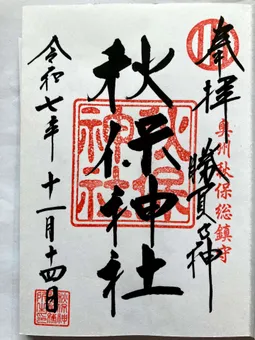 奉拝
奥州秋保総鎮守
勝負の神
秋保神社
秋保神社
令和七年 十一月十四日